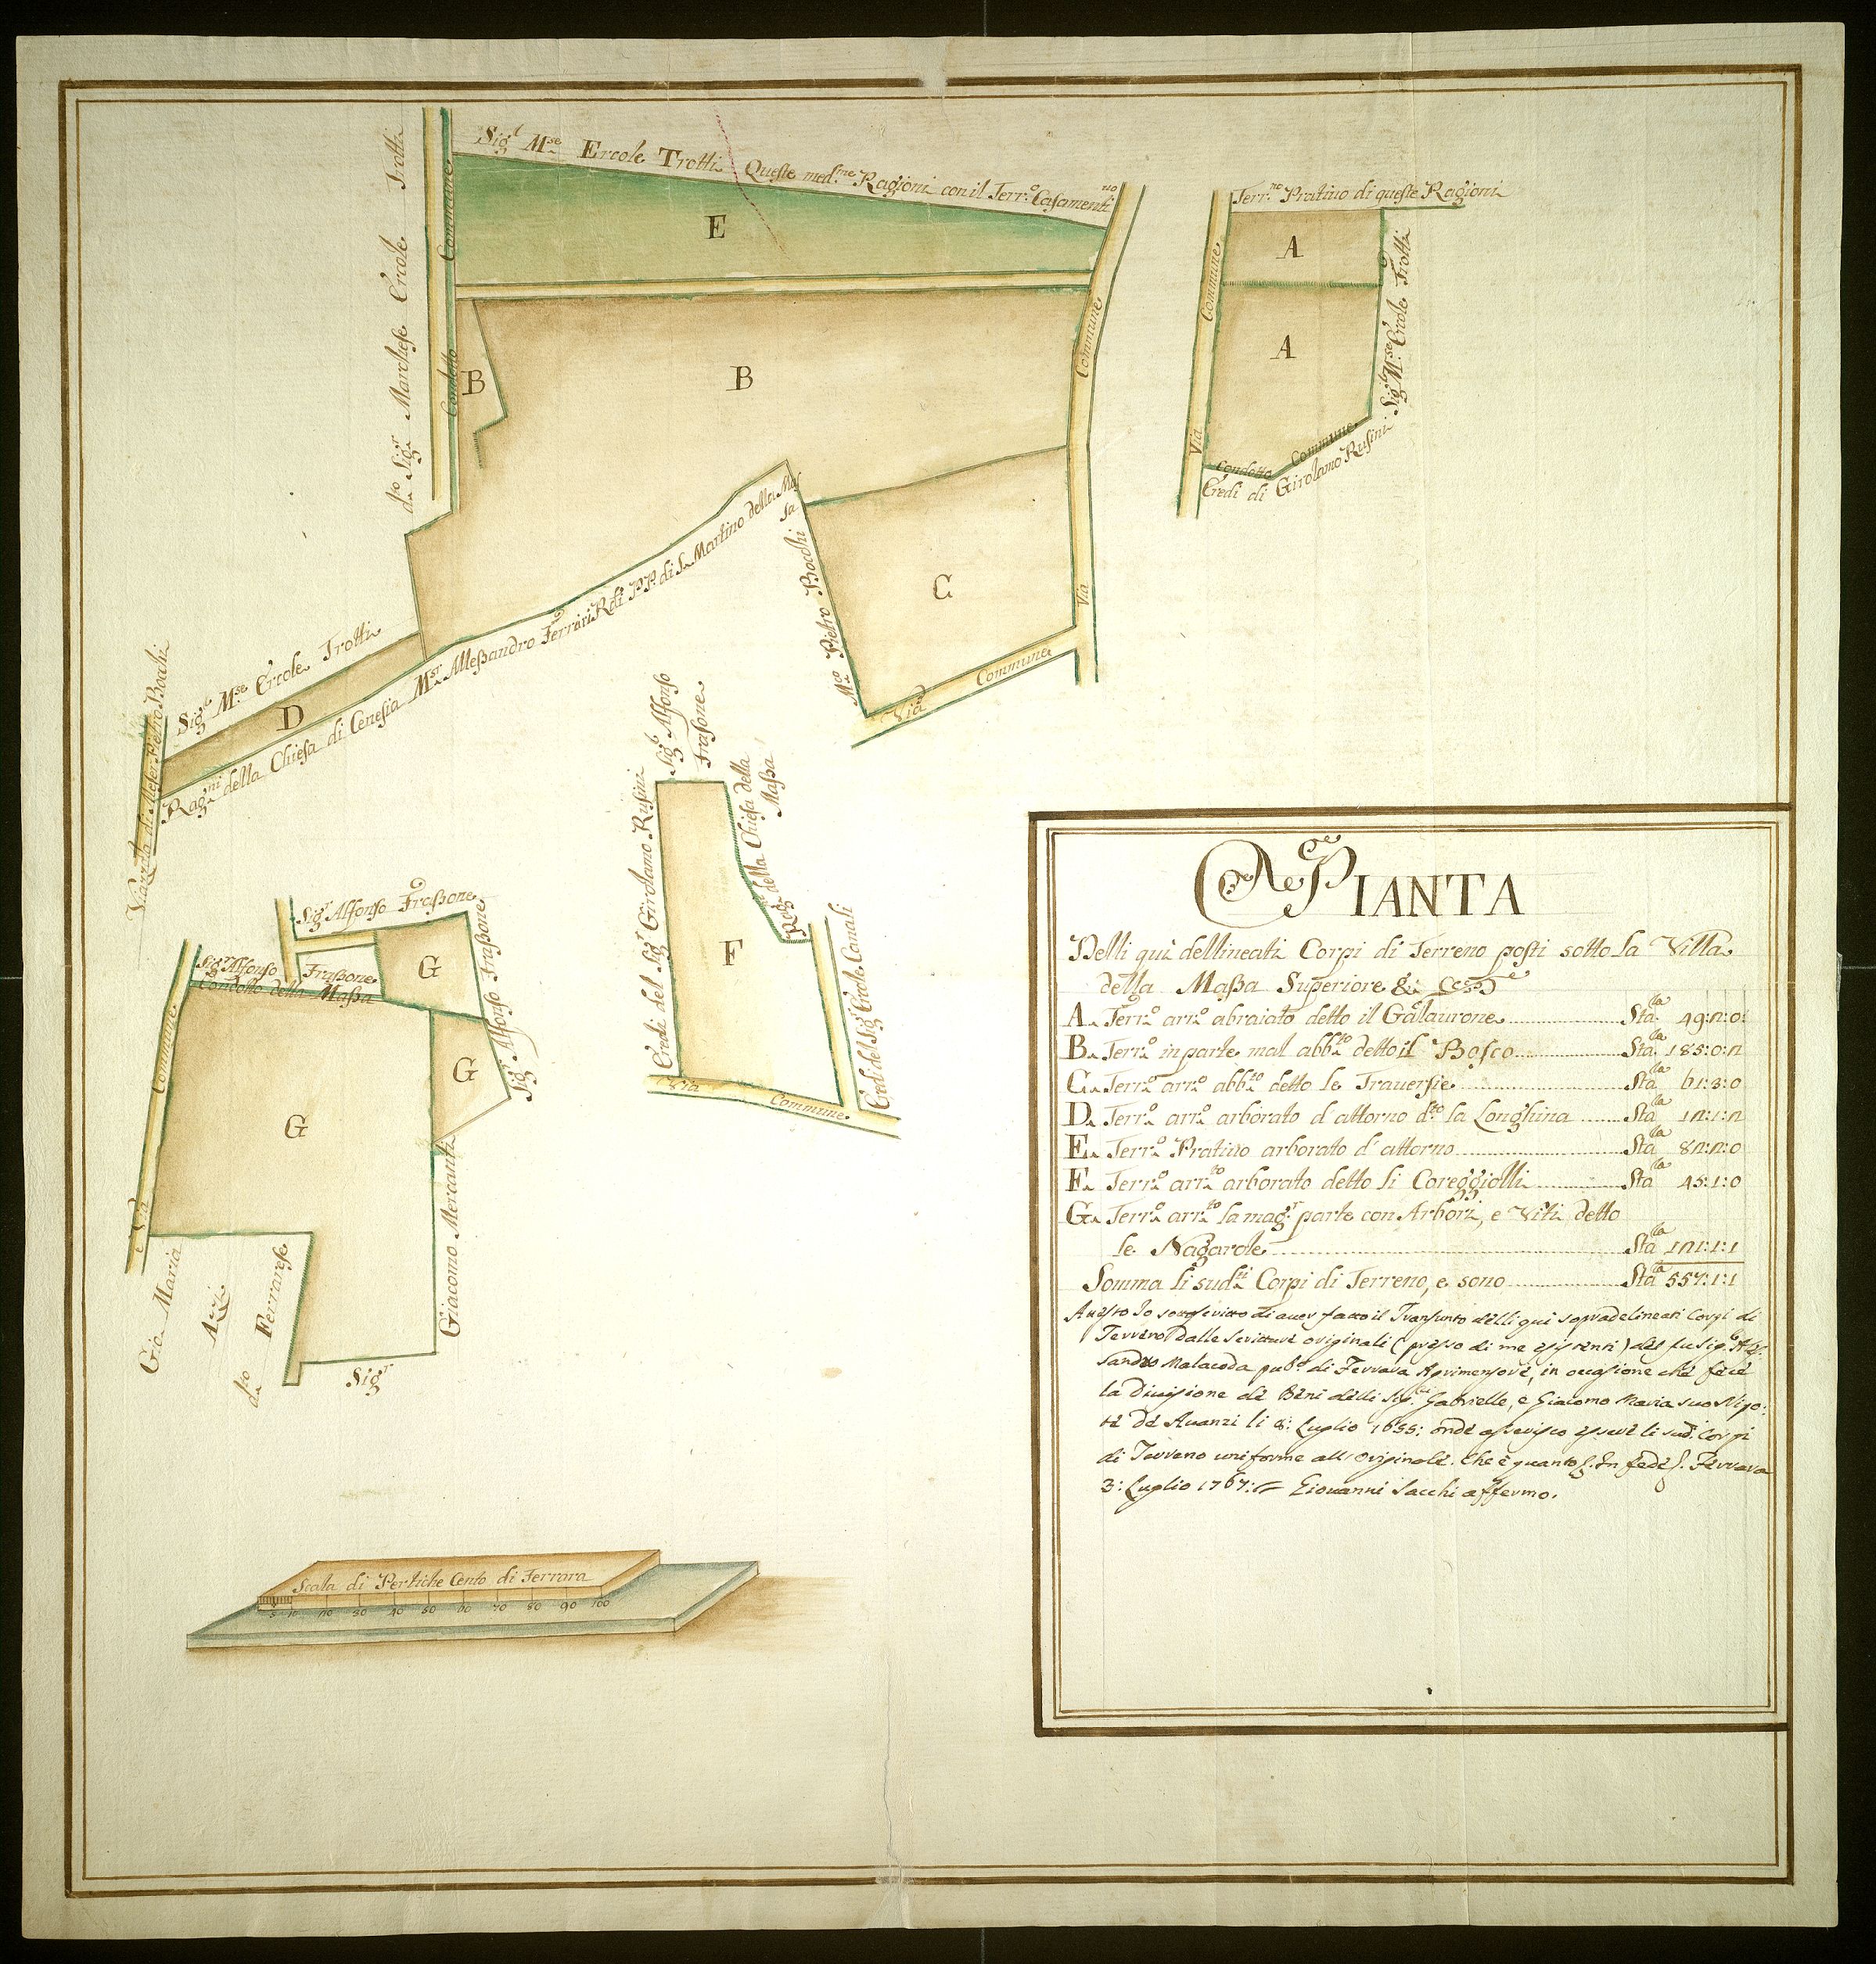 Sig.r M.se Ercole Trotti Queste med.me Ragioni con il Terr.no Casamenti
E
d.to Sig.r Marchese Ercole Trotti
Condotto Commune
B
B
Via Commune
C
Via Commune
M.co Pietro Bocchi
Rag.ni della Chiesa di Cenesia M.sr Alleßandro Ferrari R.di P.P. di S. Martino della Massa
Sig.r M.se Ercole Trotti
D
Viazzola di Meser Pietro Bocchi
Terr.no Pratiuo di queste Ragioni
A
A
Via Commune
Sig.r M.se Ercole Trotti
Condotto Commune
Eredi di Girolamo Rusini
Sig.r Alfonso
Fraßone
Eredi del Sig.r Girolamo Rusini
Rag.ni della Chiesa della
Maßa
F
Eredi del Sig.r Ercole Canali
Via Commune
Sig.r Alfonso Fraßone
Sig.r Alfonso Fraßone
Condotto della Maßa
G
Sig.r Alfonso Fraßone
G
Sig.r Alfonso Fraßone
G
Via Commune
Giacomo Mercanti
Gio. Maria
Azzi
Ferrarese
d.to
Sig.r
PIANTA
Delli qui dellineati Corpi di Terreno posti sotto la Villa
della Maßa Superiore &
A. Terr.o arr.o abraiato detto il Galaurone Sta.la 49:2:0:
B. Terr.o in parte mal abb.to detto il Bosco Sta.la 185:0:2
C. Terr.o arr.o abb.to detto le Trauersie Sta.la 61:3:0
D. Terr.o arr.o arborato d'attorno d.to la Longhina Sta.la 12:1:2
E. Terr.o Pratiuo arborato d'attorno Sta.la 82:2:0
F. Terr.o arr.to arborato detto li Coreggiolli Sta.la 45:1:0
G. Terr.o arr.to la mag.r parte con Arbori, e Viti detto
le Nagarole Sta.la 121:1:1
Somma li sud.ti Corpi di Terreno, e sono Sta.la 557:1:1
Attesto Io sottoscritto di auer fatto il Transunto delli qui sopradelineati Corpi di
Terreno dalle Scritture originali (presso di me esistenti) del fu Sig.r Ales:
sandro Malacoda pub.o di Ferrara Agrimensore, in occasione che fece
la Diuisione de Beni delli Sig.ri Gabrielle, e Giacomo Maria suo Nipo:
te de Auanzi li 8: Luglio 1655: onde asserisco essere li sud.ti Corpi
di Terreno uniforme all'originale. Che è quanto &. In fede &. Ferrara
3: Luglio 1767: Giouanni Sacchi affermo.
Scala di Pertiche Cento di Ferrara
5 10 20 30 40 50 60 70 80 90 100